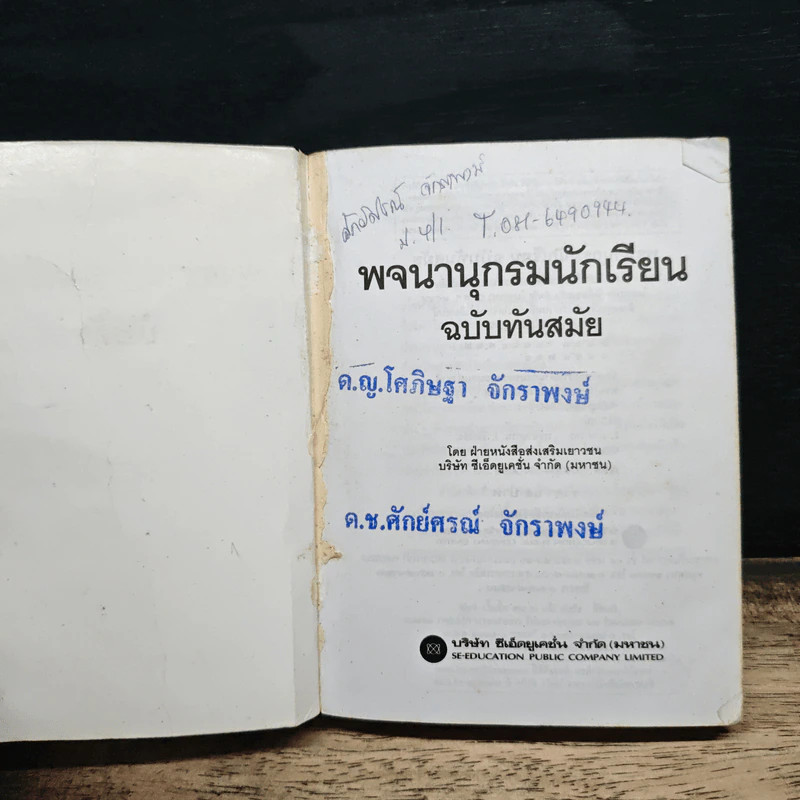 ศักย์ศรณ์ จักราพงษ์
ป.4/1. T.081-6490944.
พจนานุกรมนักเรียน
ฉบับทันสมัย
ด.ญ.โศภิษฐา จักราพงษ์
โดย ฝ่ายหนังสือส่งเสริมเยาวชน
บริษัท ซีเอ็ดยูเคชั่น จำกัด (มหาชน)
ด.ช.ศักย์ศรณ์ จักราพงษ์
บริษัท ซีเอ็ดยูเคชั่น จำกัด (มหาชน)
SE-EDUCATION PUBLIC COMPANY LIMITED